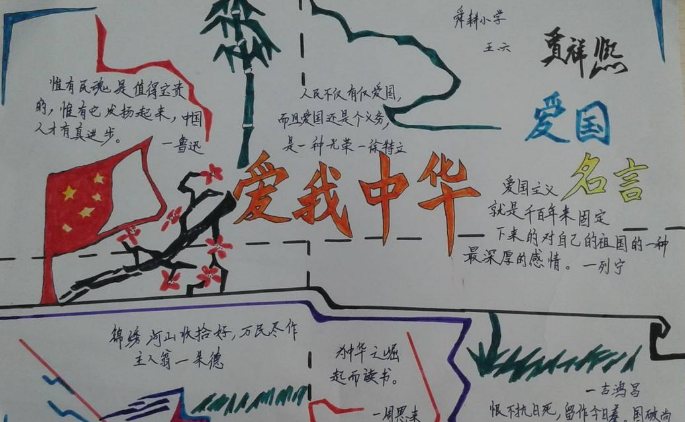 舜耕小学
王六
贾祥熙
爱国
名言
惟有民魂是值得宝贵
的，惟有它发扬起来，中国
人才有真进步。
—鲁迅
人民不仅有仅爱国，
而且爱国还是个义务，
是一种光荣—徐特立
爱我中华
爱国主义
就是千百年来固定
下来的对自己的祖国的一种
最深厚的感情。—列宁
锦绣河山收拾好，万民尽作
主人翁—朱德
为中华之崛
起而读书。
—周恩来
—吉鸿昌
恨不抗日死，留作今日羞。国破尚